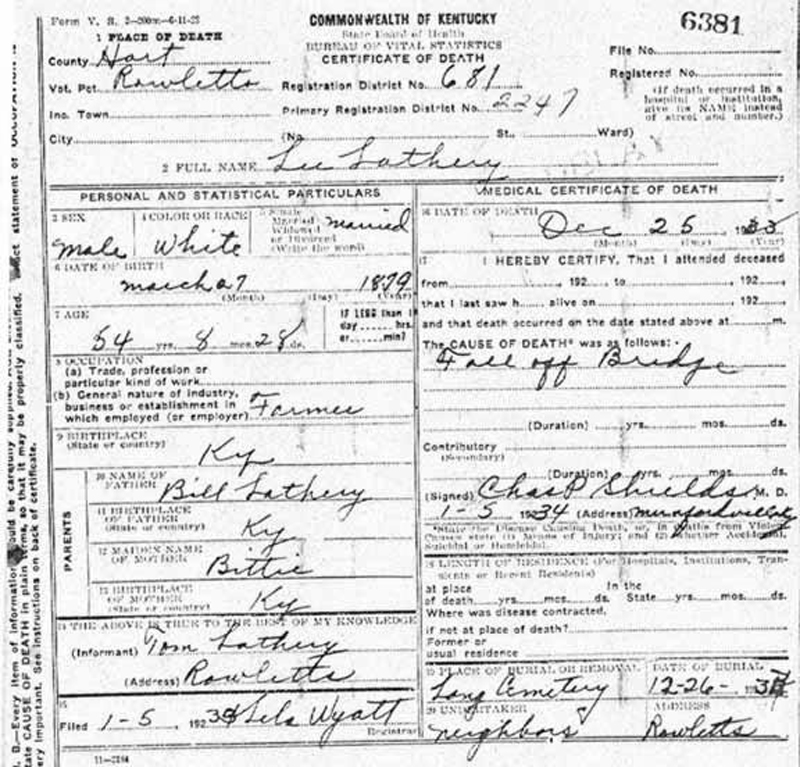 Form V. S. 2-200m-6-11-23
COMMONWEALTH OF KENTUCKY
State Board of Health
BUREAU OF VITAL STATISTICS
CERTIFICATE OF DEATH
6381
1 PLACE OF DEATH
County Hart
Vot. Pct. Rowletts
Inc. Town
City
Registration District No. 681
Primary Registration District No. 2247
(No. St., Ward)
File No.
Registered No.
(If death occurred in a
hospital or institution,
give its NAME instead
of street and number.)
2 FULL NAME Lee Lathery
PERSONAL AND STATISTICAL PARTICULARS
3 SEX
male
4 COLOR OR RACE
White
5 Single
Married
Widowed
or Divorced
(Write the word)
married
6 DATE OF BIRTH
march 27 1879
(Month) (Day) (Year)
7 AGE
54 yrs. 8 mos. 28 ds.
IF LESS than 1
day hrs.
or min?
8 OCCUPATION
(a) Trade, profession or
particular kind of work
(b) General nature of industry,
business or establishment in
which employed (or employer) Farmer
9 BIRTHPLACE
(State or country)
Ky
PARENTS
10 NAME OF
FATHER Bill Lathery
11 BIRTHPLACE
OF FATHER
(State or country) Ky
12 MAIDEN NAME
OF MOTHER Bittie
13 BIRTHPLACE
OF MOTHER
(State or country) Ky
14 THE ABOVE IS TRUE TO THE BEST OF MY KNOWLEDGE
(Informant) Tom Lathery
(Address) Rowletts
15
Filed 1-5, 1934 Lela Wyatt
Registrar
11-3184
MEDICAL CERTIFICATE OF DEATH
16 DATE OF DEATH
Dec 25 1933
(Month) (Day) (Year)
17 I HEREBY CERTIFY, That I attended deceased
from , 192 , to , 192 ,
that I last saw h alive on , 192 ,
and that death occurred on the date stated above at m.
The CAUSE OF DEATH* was as follows:
Fall off Bridge
(Duration) yrs. mos. ds.
Contributory
(Secondary)
(Duration) yrs. mos. ds.
(Signed) Chas P Shields M. D.
1-5 1934 (Address) Munfordville Ky
*State the Disease Causing Death, or, in deaths from Violent
Causes state (1) Means of Injury; and (2) whether Accidental,
Suicidal or Homicidal.
18 LENGTH OF RESIDENCE (For Hospitals, Institutions, Tran-
sients or Recent Residents)
at place In the
of death yrs. mos. ds. State yrs. mos. ds.
Where was disease contracted,
if not at place of death?
Former or
usual residence
19 PLACE OF BURIAL OR REMOVAL
Long Cemetery
DATE OF BURIAL
12-26-
20 UNDERTAKER
neighbors
ADDRESS
Rowletts